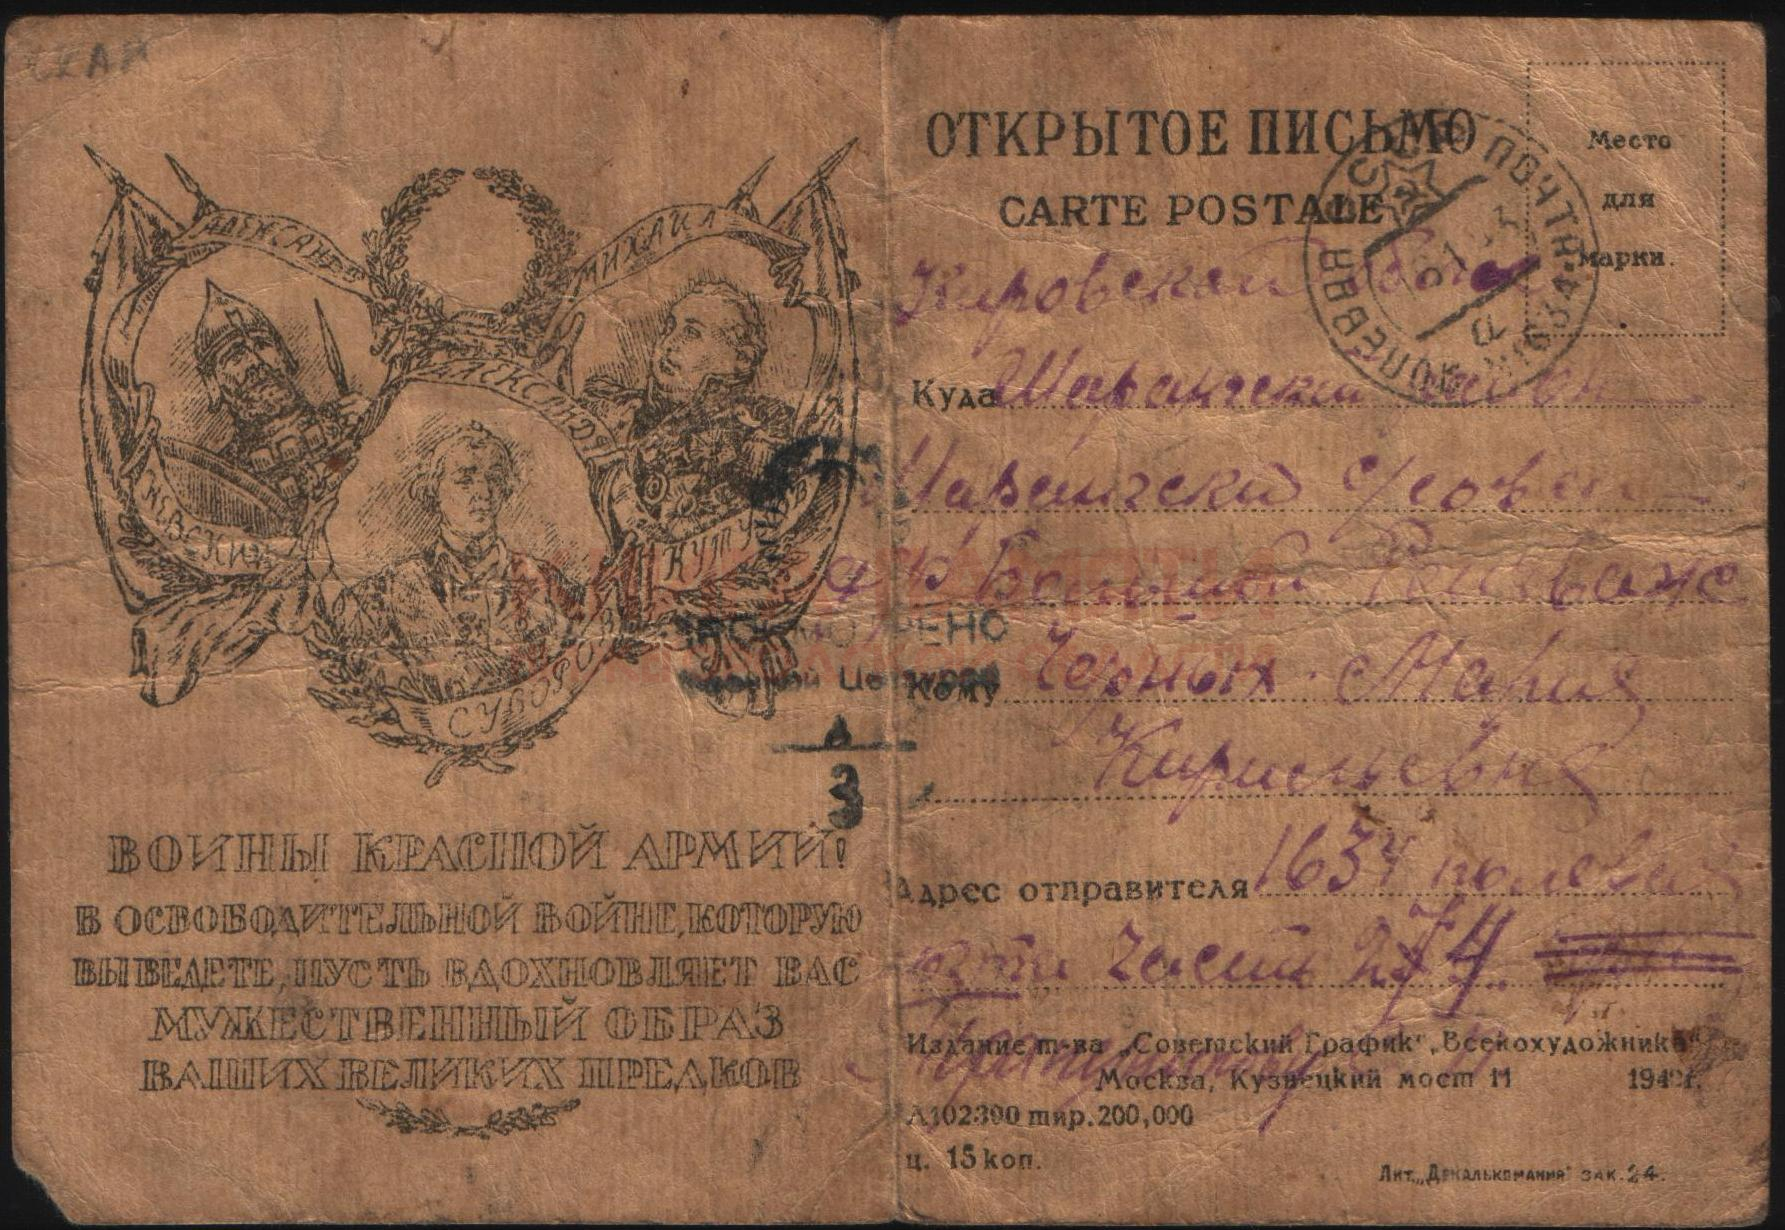 АЛЕКСАНДР
НЕВСКИЙ
МИХАИЛ
КУТУЗОВ
АЛЕКСАНДР
СУВОРОВ
ВОИНЫ КРАСНОЙ АРМИИ!
В ОСВОБОДИТЕЛЬНОЙ ВОЙНЕ, КОТОРУЮ
ВЫ ВЕДЕТЕ, ПУСТЬ ВДОХНОВЛЯЕТ ВАС
МУЖЕСТВЕННЫЙ ОБРАЗ
ВАШИХ ВЕЛИКИХ ПРЕДКОВ
ПРОСМОТРЕНО
Военной Цензурой
ОТКРЫТОЕ ПИСЬМО
CARTE POSTALE
Место
для
марки.
СССР ПОЧТА
ПОЛЕВАЯ
1634
Кировской
Куда Шарангский район
Шарангски
Большой
Кому Черных Мария
Кирильевня
Адрес отправителя 1634 полевая
почта часть 274
Издание т-ва „Советский График", „Всекохудожника"
Москва, Кузнецкий мост 11 1942г.
Л102390 тир. 200,000
ц. 15 коп.
Лит. „Декалькомания" зак. 24.